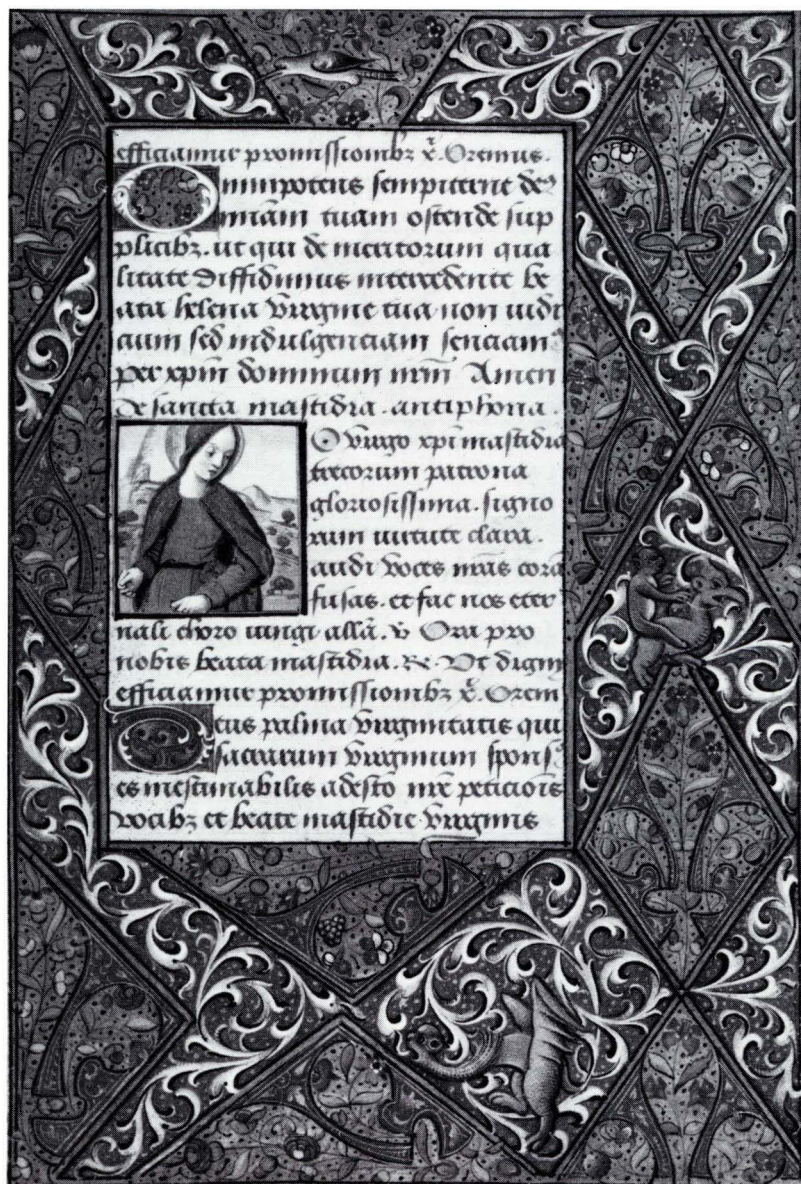 efficiamur promissionibz x̄. Oremus.
Omnipotens sempiterne de⁹
miām tuam ostende sup
plicibz. ut qui de meritorum qua
litate diffidimus intercedente be
ata helena virgine tua non iudi
cium sed indulgenciam senciam⁹
per xp̄m dominum nr̄m Amen
De sancta mastidia. antiphona.
O virgo xp̄i mastidia
trecorum patrona
gloriosissima. signo
rum virtute clara.
audi voces nr̄as corā
fusas. et fac nos eter
nali choro iungi allā. v̄ Ora pro
nobis beata mastidia. R. Ut digni
efficiamur promissionibz x̄. Orem
Deus palma virginitatis qui
sacrarum virginum spons⁹
es inestimabilis adesto nr̄e peticiōis
vocibz et beate mastidie virginis